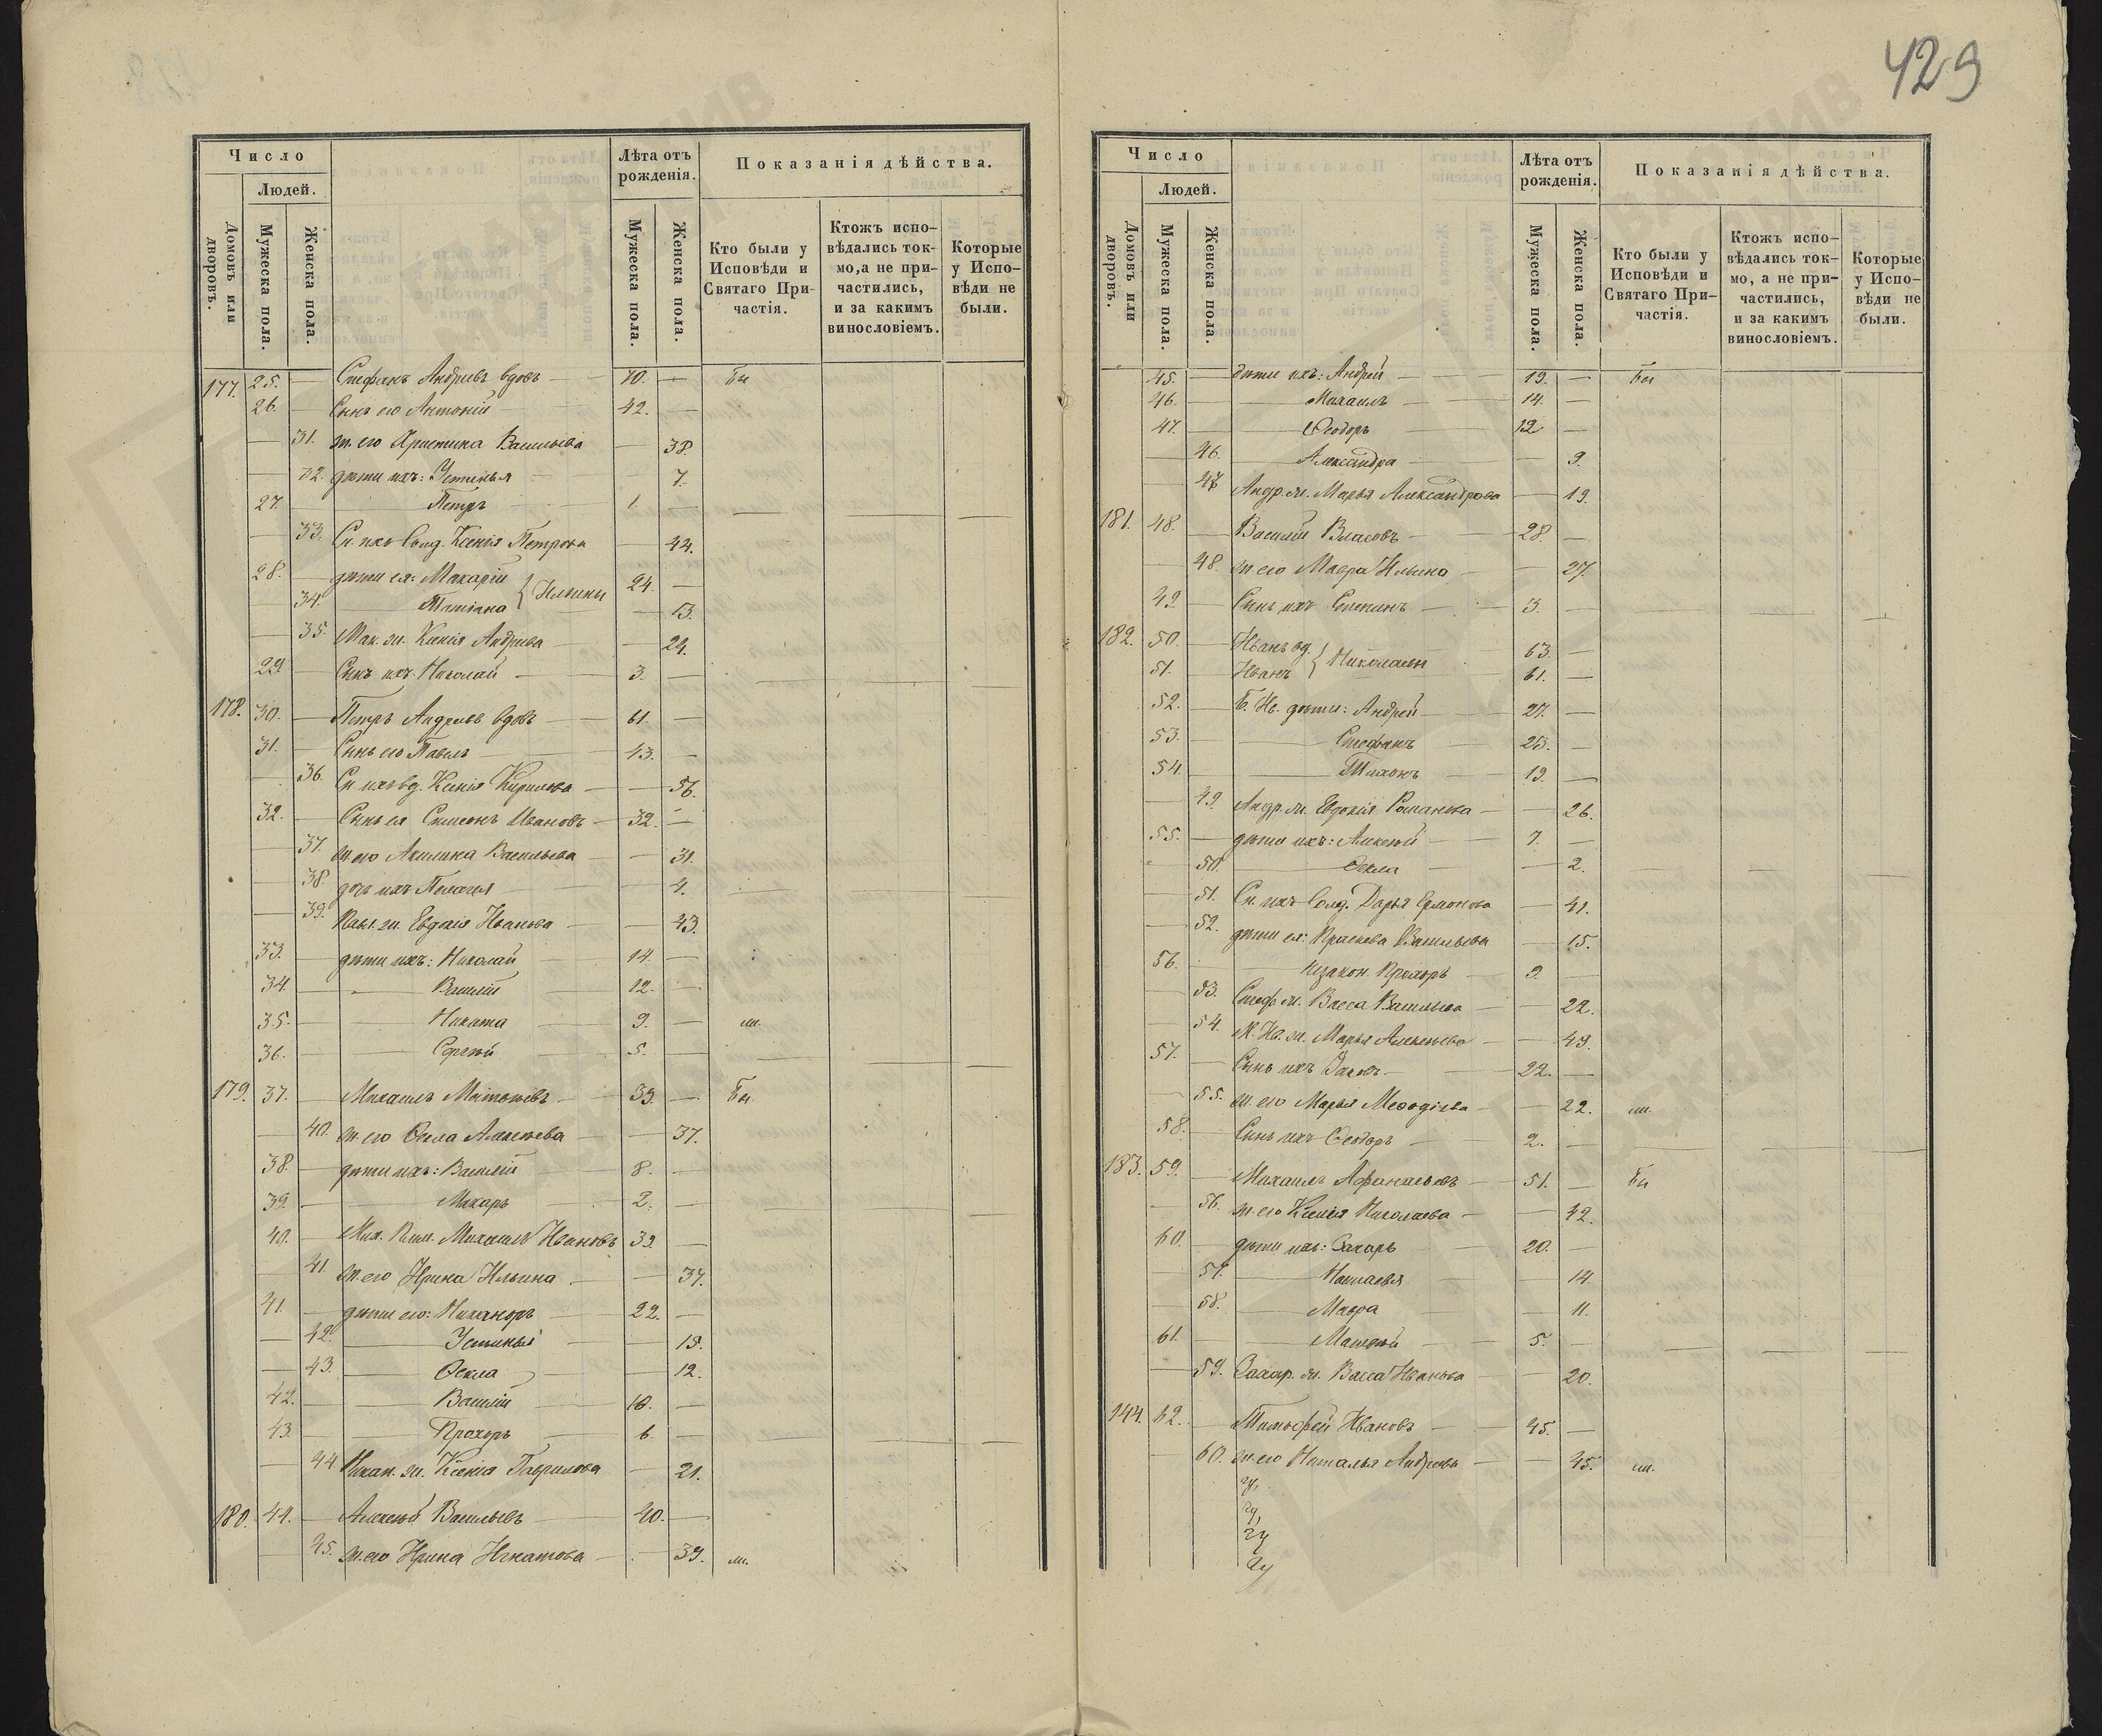 429
Число
Людей.
Домовъ или дворовъ.
Мужеска пола.
Женска пола.
Лѣта отъ рожденія.
Мужеска пола.
Женска пола.
Показанія дѣйства.
Кто были у Исповѣди и Святаго Причастія.
Ктожъ исповѣдались токмо, а не причастились, и за какимъ винословіемъ.
Которые у Исповѣди не были.
177. 25. — Стефанъ Андреевъ вдовъ — 70. — Бы
26. — Сынъ его Антоній — 42. —
— 31. ж. его Христина Васильева — 38.
— 32. дѣти ихъ: Устинья — 7.
27. — Петръ — 1. —
— 33. Сн. ихъ Солд. Ксенія Петрова — 44.
28. — дѣти ея: Макарій } Ильины 24. —
— 34. — Татіана — 13.
— 35. Мак. ж. Ксенія Андреева — 24.
29 — Сынъ ихъ Николай — 3. —
178. 30. — Петръ Андреевъ вдовъ — 61. —
31. — Сынъ его Павелъ — 43. —
— 36. Сн. ихъ вд. Ксенія Кирилова — 56.
32. — Сынъ ея Симеонъ Ивановъ — 32. —
— 37. ж. его Акилина Васильева — 31.
— 38. дочь ихъ Пелагея — 4.
— 39. Павл. ж. Евдокія Иванова — 43.
33. — дѣти ихъ: Николай — 14. —
34. — Василій — 12. —
35. — Никита — 9. — ли.
36. — Сергѣй — 5. —
179. 37. — Михаилъ Матѳѣевъ — 39. — Бы
— 40. ж. его Ѳекла Алексѣева — 37.
38. — дѣти ихъ: Василій — 8. —
39. — Макаръ — 2. —
40. — Мих. Михаилъ Ивановъ 39. —
— 41. ж. его Ирина Ильина — 37.
41. — дѣти его: Никаноръ — 22. —
— 42. — Устинья — 15.
— 43. — Ѳекла — 12.
42. — Василій — 10. —
43. — Прохоръ — 6. —
— 44. Никан. ж. Ксенія Гаврилова — 21.
180. 44. — Алексѣй Васильевъ — 40. —
— 45. ж. его Ирина Игнатова — 39. ли.
Число
Людей.
Домовъ или дворовъ.
Мужеска пола.
Женска пола.
Лѣта отъ рожденія.
Мужеска пола.
Женска пола.
Показанія дѣйства.
Кто были у Исповѣди и Святаго Причастія.
Ктожъ исповѣдались токмо, а не причастились, и за какимъ винословіемъ.
Которые у Исповѣди не были.
45. — дѣти ихъ: Андрей — 19. — Бы
46. — Михаилъ — 14. —
47. — Ѳеодоръ — 12 —
— 46. — Александра — 9.
— 47 Андр. ж. Марья Александрова — 19.
181. 48. — Василій Власовъ — 28. —
— 48. ж. его Мавра Ильина — 27.
49. — Сынъ ихъ Степанъ — 3. —
182. 50. — Иванъ вд. } Николаевы 63. —
51. — Иванъ 61. —
52. — Б. Ив. дѣти: Андрей — 27. —
53. — Стефанъ — 23. —
54. — Тихонъ — 19. —
— 49. Андр. ж. Евдокія Романова — 26.
55. — дѣти ихъ: Алексѣй — 7. —
— 50. — Ѳекла — 2.
— 51. Сн. ихъ Солд. Дарья — 41.
— 52. дѣти ея: Праскева Васильева — 15.
56. — незакон. Прохоръ — 9. —
— 53. Стеф. ж. Васса Васильева — 22.
— 54. М. Ив. ж. Марья Алексѣева — 49.
57. — Сынъ ихъ Яковъ — 22. —
— 55. ж. его Марья Меѳодіева — 22. ли.
58. — Сынъ ихъ Ѳеодоръ — 2. —
183. 59. — Михаилъ Афанасьевъ — 51. — Бы
— 56. ж. его Ксенія Николаева — 42.
60. — дѣти ихъ: Захаръ — 20. —
— 57. — Наталья — 14.
— 58. — Мавра — 11.
61. — Матѳѣй — 5. —
— 59. Захар. ж. Васса Иванова — 20.
144. 62. — Тимоѳей Ивановъ — 45. —
— 60. ж. его Наталья Андреева — 45. ли.